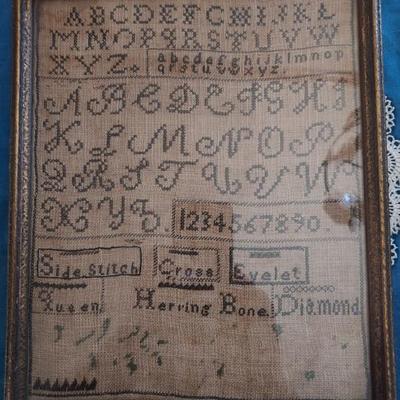 ABCDEFGHIJKL
MNOPQRSTUVW
XYZ
abcdefghijklmnop
qrstuvwxyz.
ABCDEFGHI
KLMNOP
QRSTUVW
XYZ. 1234567890.
Side Stitch Cross Eyelet
Queen Herring Bone Diamond